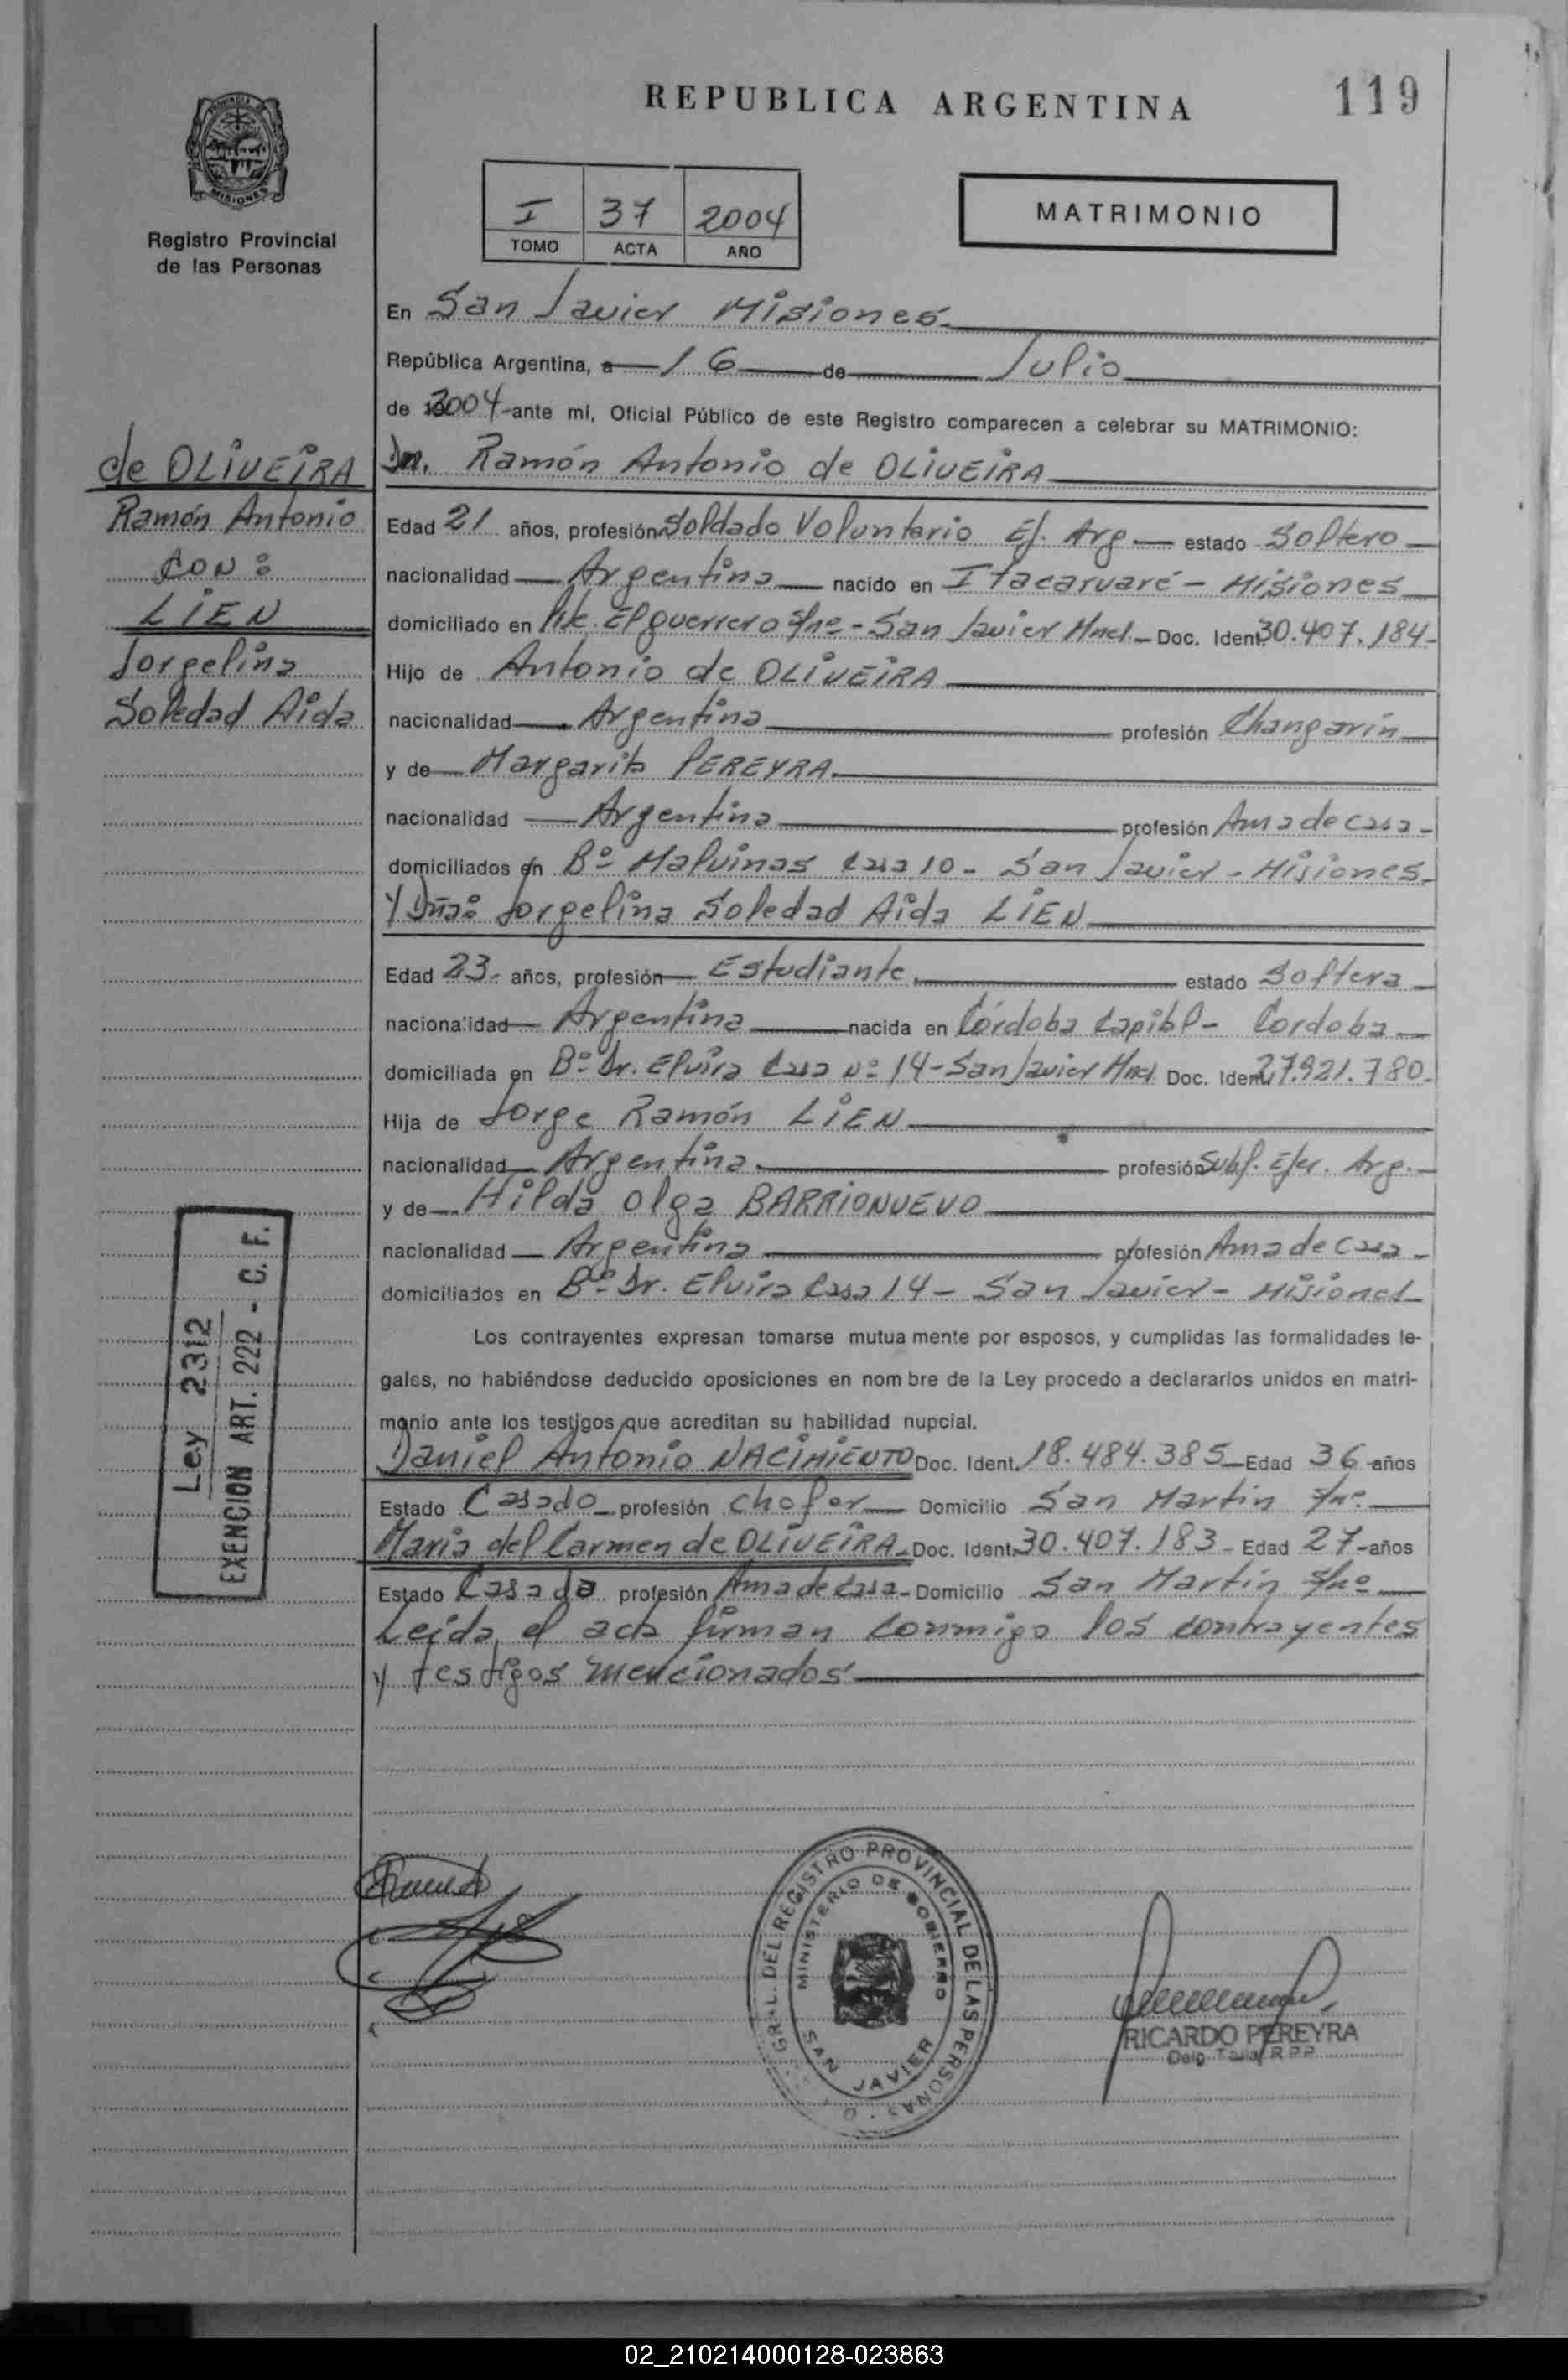 REPUBLICA ARGENTINA
119
PROVINCIA DE MISIONES
Registro Provincial
de las Personas
I 37 2004
TOMO ACTA AÑO
MATRIMONIO
En San Javier Misiones
República Argentina, a 16 de Julio
de 2004 ante mi, Oficial Público de este Registro comparecen a celebrar su MATRIMONIO:
Dn. Ramón Antonio de OLIVEIRA
Edad 21 años, profesión Soldado Voluntario Ej. Arg estado Soltero
nacionalidad Argentina nacido en Itacaruaré - Misiones
domiciliado en Pje. El guerrero s/nº - San Javier Mnes - Doc. Ident 30.407.184-
Hijo de Antonio de OLIVEIRA
nacionalidad Argentina profesión Changarín
y de Margarita PEREYRA
nacionalidad Argentina profesión Ama de casa-
domiciliados en Bº Malvinas casa 10 - San Javier - Misiones-
Y Dña: Jorgelina Soledad Aida LIEN
Edad 23- años, profesión Estudiante estado Soltera
nacionalidad Argentina nacida en Córdoba Capital - Cordoba
domiciliada en Bº Dr. Elvira Casa Nº 14 - San Javier Mnes Doc. Ident 27.921.780-
Hija de Jorge Ramón LIEN
nacionalidad Argentina profesión Subf. Ejer. Arg.
y de Hilda Olga BARRIONUEVO
nacionalidad Argentina profesión Ama de casa-
domiciliados en Bº Dr. Elvira Casa 14 - San Javier - Misiones
Los contrayentes expresan tomarse mutua mente por esposos, y cumplidas las formalidades le-
gales, no habiéndose deducido oposiciones en nom bre de la Ley procedo a declararlos unidos en matri-
monio ante los testigos que acreditan su habilidad nupcial.
Daniel Antonio NACIMIENTO Doc. Ident. 18.484.385 Edad 36 años
Estado Casado profesión Chofer Domicilio San Martin s/nº
Maria del Carmen de OLIVEIRA - Doc. Ident. 30.407.183 - Edad 27 - años
Estado Casada profesión Ama de casa - Domicilio San Martín s/nº
Leída el acta firman conmigo los contrayentes
y testigos mencionados
de OLIVEIRA
Ramón Antonio
CON:
LIEN
Jorgelina
Soledad Aida
Ley 2312
EXENCION ART. 222 - C. F.
GRAL. DEL REGISTRO PROVINCIAL DE LAS PERSONAS
MINISTERIO DE GOBIERNO
SAN JAVIER
RICARDO PEREYRA
Deleg. R.P.P.
02_210214000128-023863